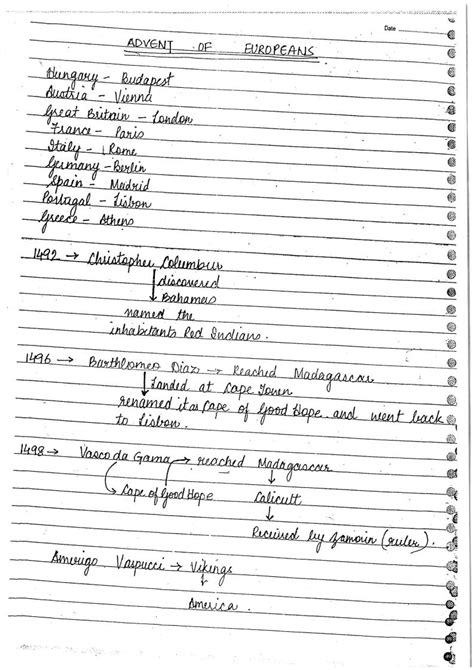 Date
ADVENT OF EUROPEANS
Hungary - Budapest
Austria - Vienna
Great Britain - London
France - Paris
Italy - Rome
Germany - Berlin
Spain - Madrid
Portugal - Lisbon
Greece - Athens
1492 → Christopher Columbus
↓ discovered
Bahamas
named the
inhabitants Red Indians.
1496 → Barthlomeo Diaz → Reached Madagascar
↓ Landed at Cape Town
renamed it as Cape of Good Hope and went back
to Lisbon.
1498 → Vasco da Gama → reached Madagascar
→ Cape of Good Hope → Calicutt
Received by Zamorin (ruler).
Amerigo Vaspucci → Vikings
America.